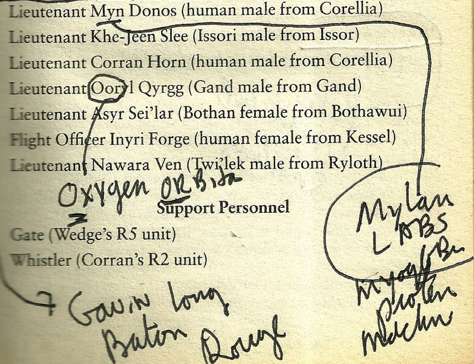 Lieutenant Myn Donos (human male from Corellia)
Lieutenant Khe-Jeen Slee (Issori male from Issor)
Lieutenant Corran Horn (human male from Corellia)
Lieutenant Ooryl Qyrgg (Gand male from Gand)
Lieutenant Asyr Sei'lar (Bothan female from Bothawui)
Flight Officer Inyri Forge (human female from Kessel)
Lieutenant Nawara Ven (Twi'lek male from Ryloth)
Oxygen
Support Personnel
Gate (Wedge's R5 unit)
Whistler (Corran's R2 unit)
Mylan
LABS
Gavin Long
Baton Rouge